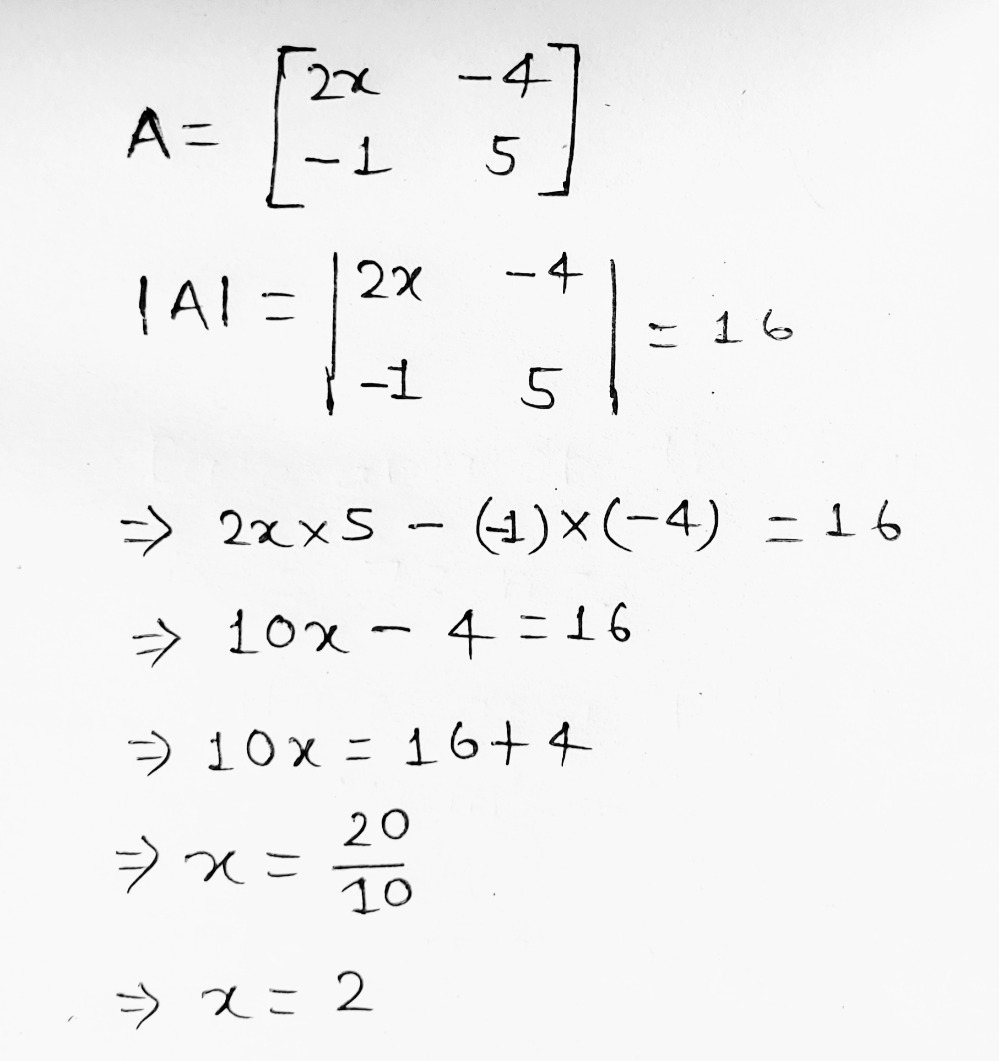 A = [ 2x -4
-1 5 ]
|A| = | 2x -4
-1 5 | = 16
⇒ 2x × 5 - (-1) × (-4) = 16
⇒ 10x - 4 = 16
⇒ 10x = 16 + 4
⇒ x = 20/10
⇒ x = 2